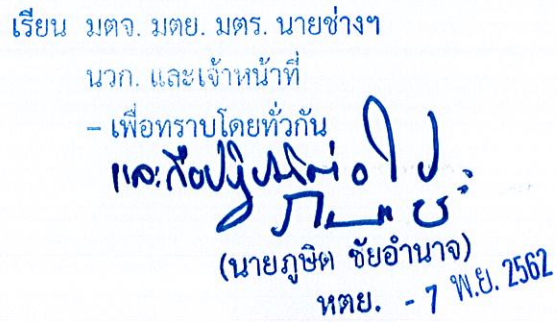 เรียน มตจ. มตย. มตร. นายช่างฯ
นวก. และเจ้าหน้าที่
- เพื่อทราบโดยทั่วกัน
และถือปฏิบัติต่อไป
(นายภูษิต ชัยอำนาจ)
หตย. - 7 พ.ย. 2562